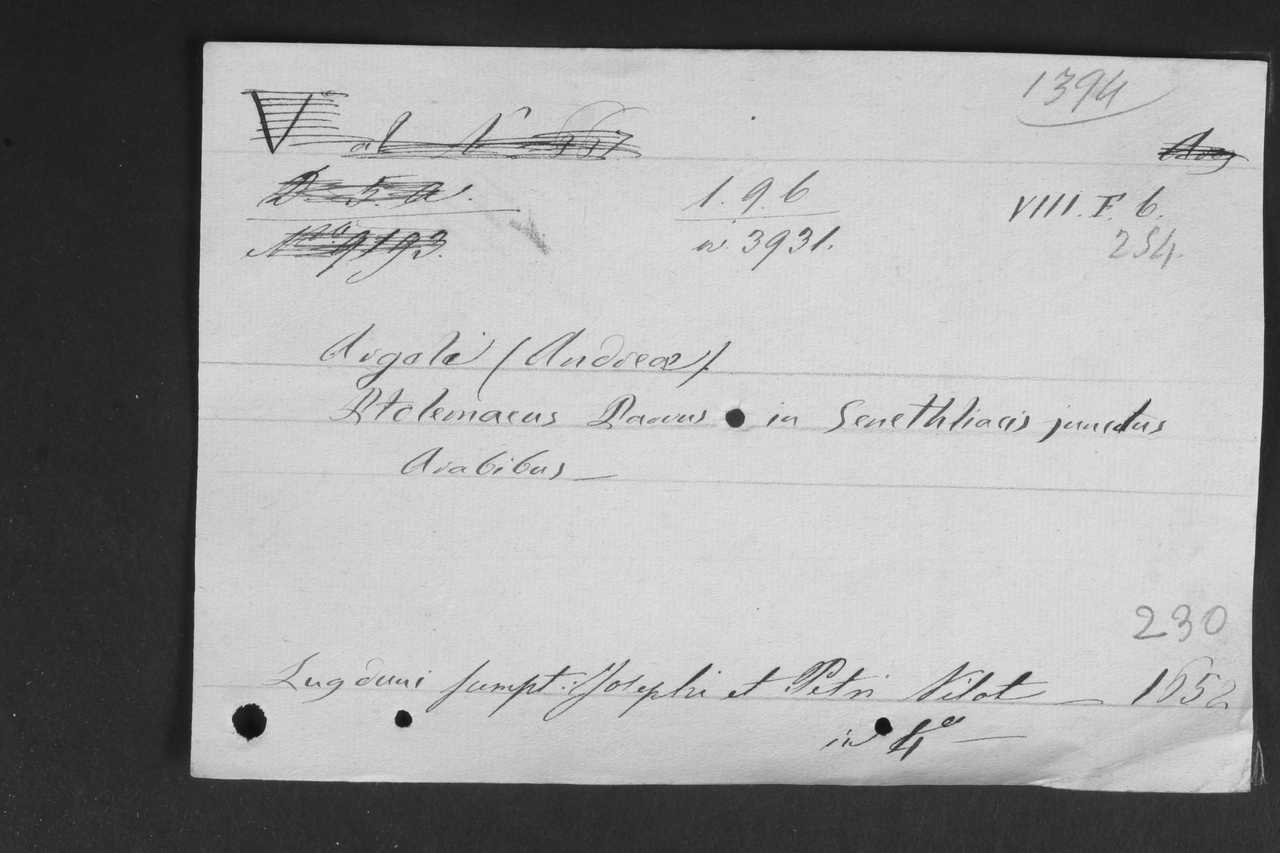 1394
D. 5 a.
1. 9. 6
VIII. F. 6.
No. 9193.
n. 3931.
254.
Argoli (Andreæ).
Ptolemaeus Parvus in Genethliacis junctus
Arabibus
230
Lugduni sumpt: Josephi et Petri Vilot 1652
in 4º